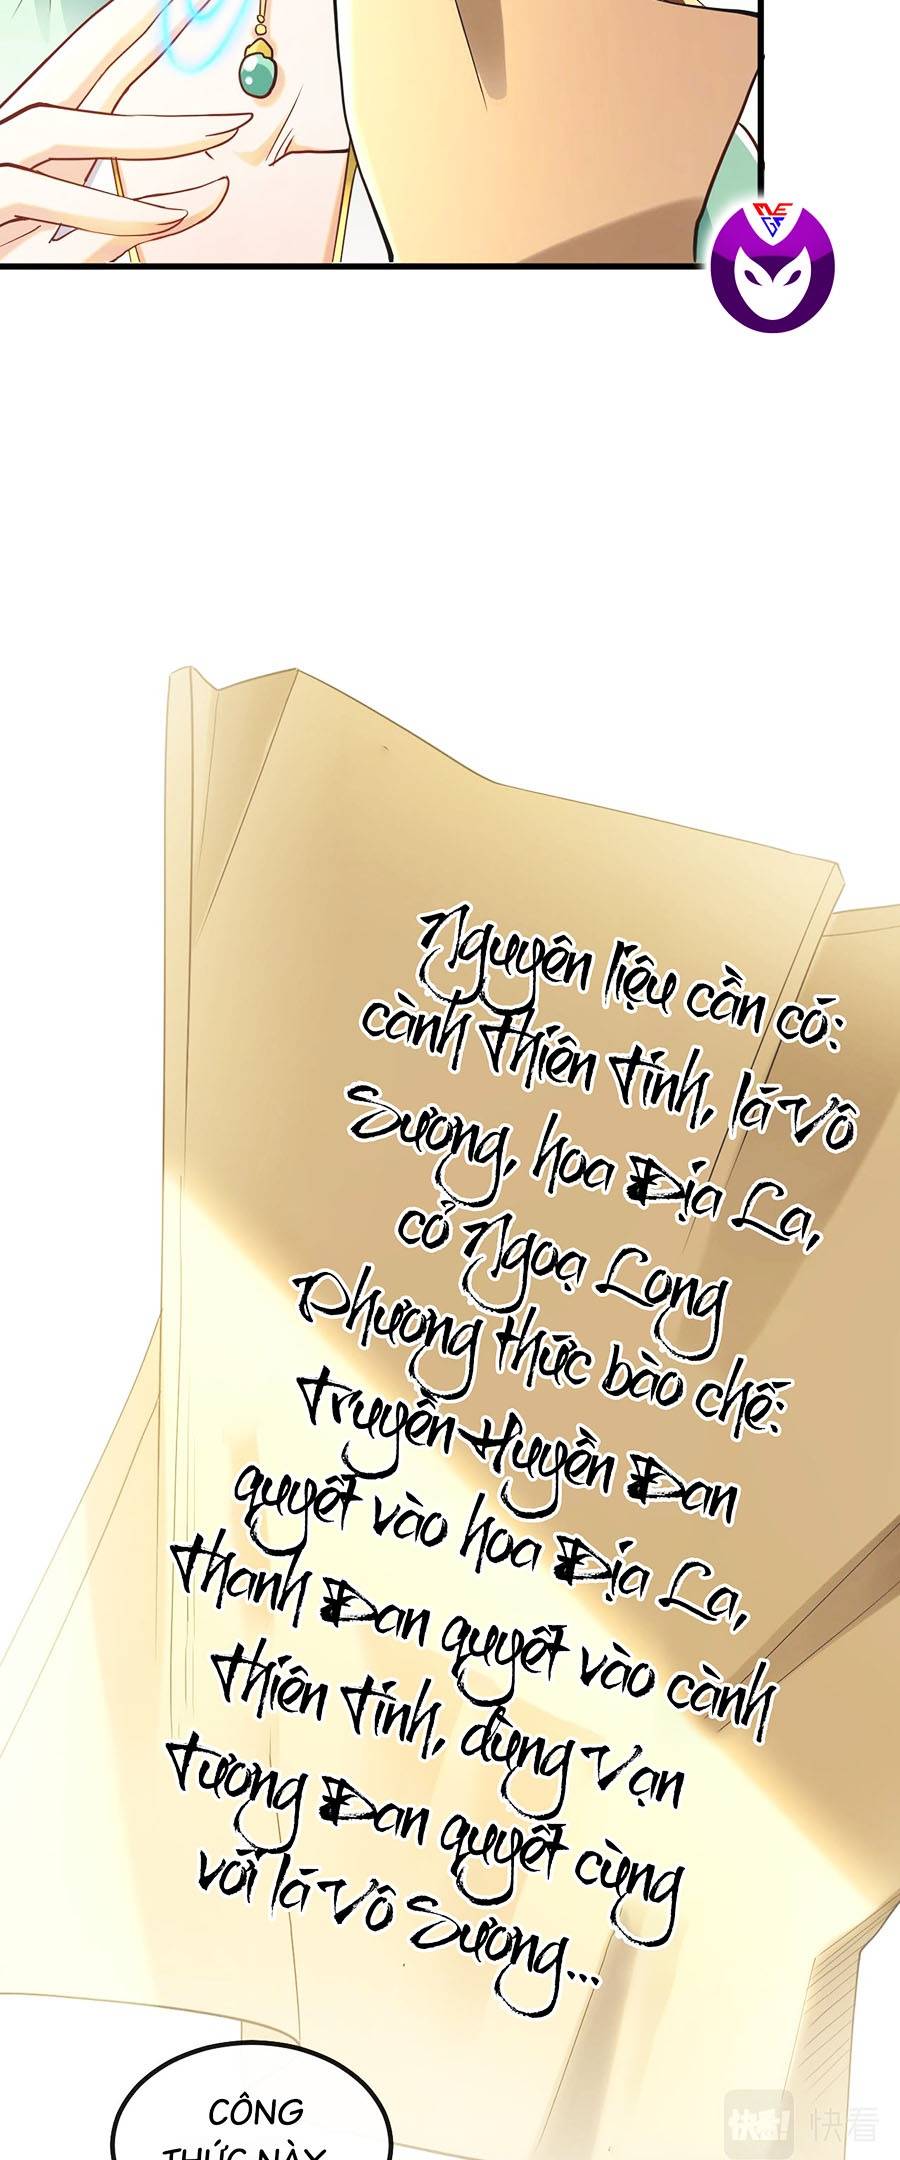 MEGT
Nguyên liệu cần có:
cành thiên tinh, lá Vô
Sương, hoa Địa La,
cỏ Ngoạ Long
Phương thức bào chế:
truyền Huyền Đan
quyết vào hoa Địa La,
thanh Đan quyết vào cành
thiên tinh, dùng Vạn
tượng Đan quyết cùng
với lá Vô Sương...
CÔNG
THỨC NÀY
快看! 快看